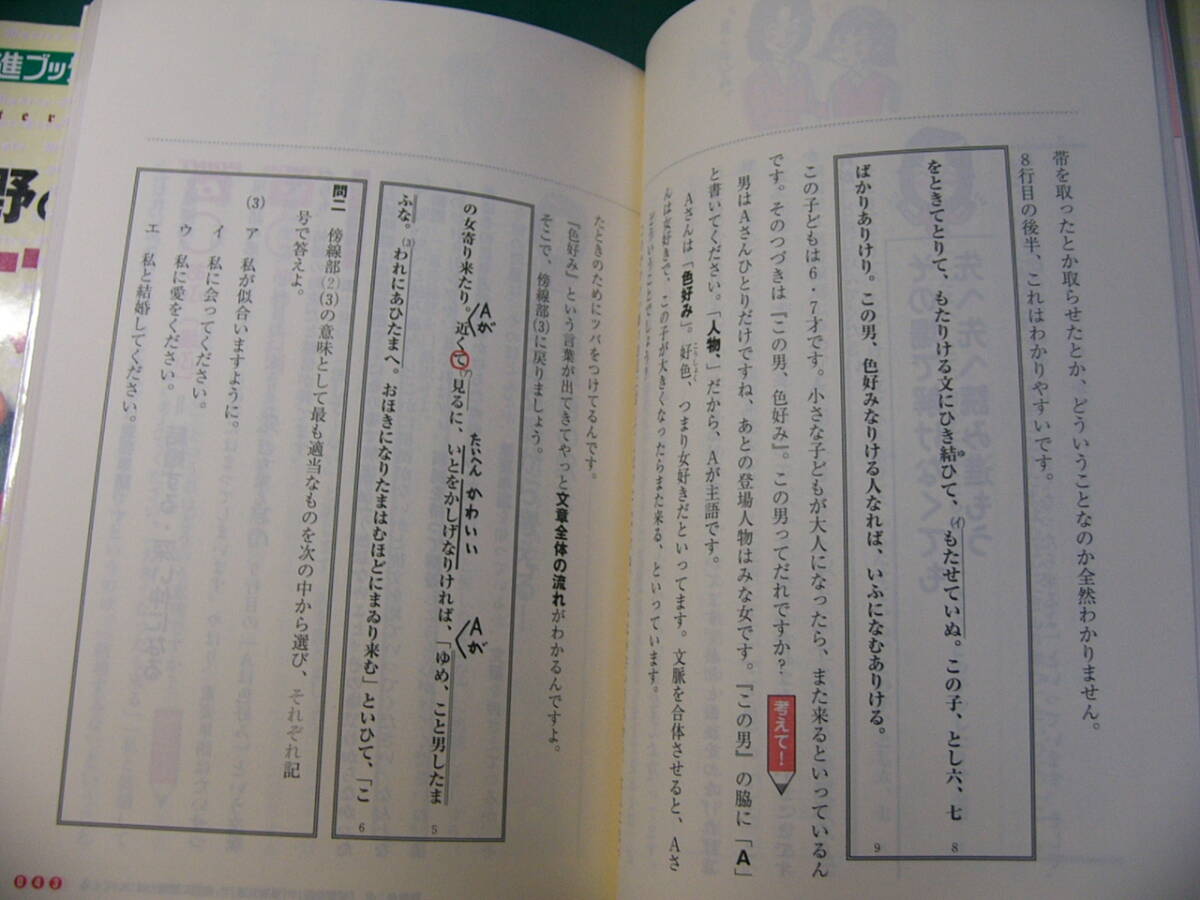 帯を取ったとか取らせたとか、どういうことなのか全然わかりません。
8行目の後半、これはわかりやすいです。
をときてとりて、もたりける文にひき結ひて、(イ)もたせていぬ。この子、とし六、七
ゆ
8
ばかりありけり。この男、色好みなりける人なれば、いふになむありける。
9
この子どもは6・7才です。小さな子どもが大人になったら、また来るといっているん
です。そのつづきは『この男、色好み』。この男ってだれですか?
考えて!
男はAさんひとりだけですね、あとの登場人物はみな女です。『この男』の脇に「A」
と書いてください。「人物、」だから、Aが主語です。
Aさんは「色好み」。好色、つまり女好きだといってます。文脈を合体させると、Aさ
こうしょく
んは女好きで、この子が大きくなったらまた来る、といっています。
たときのためにツバをつけてるんです。
『色好み』という言葉が出てきてやっと文章全体の流れがわかるんですよ。
そこで、傍線部(3)に戻りましょう。
の女寄り来たり。近くて(ア)見るに、いとをかしげなりければ、「ゆめ、こと男したま
Aが
たいへん かわいい
Aが
5
ふな。(3)われにあひたまへ。おほきになりたまはむほどにまゐり来む」といひて、「こ
6
問二 傍線部(2)(3)の意味として最も適当なものを次の中から選び、それぞれ記
号で答えよ。
(3) ア 私が似合いますように。
イ 私に会ってください。
ウ 私に愛をください。
エ 私と結婚してください。
043
進ブッ
野の